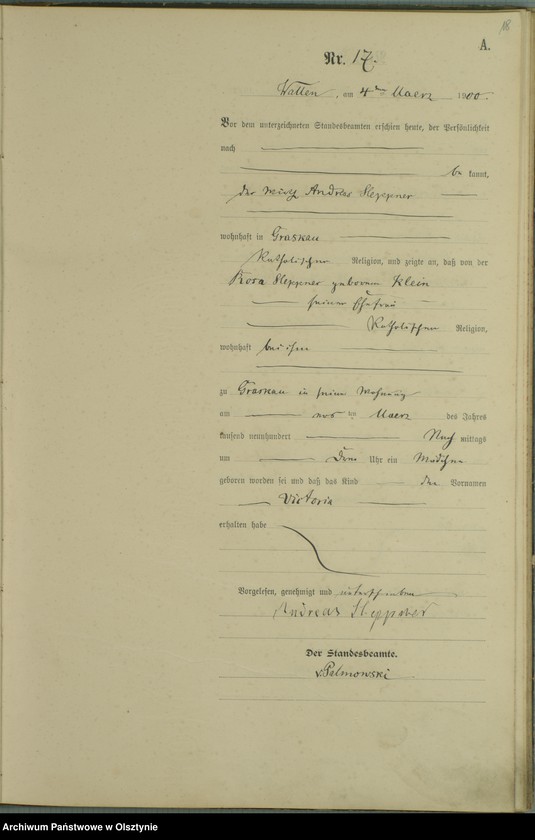 18
A.
Nr. 17.
Wallen, am 4ten Maerz 1900.
Vor dem unterzeichneten Standesbeamten erschien heute, der Persönlichkeit
nach
be kannt,
der Andreas Steppner
wohnhaft in Graskau
Katholischer Religion, und zeigte an, daß von der
Rosa Steppner geborenen Klein
seiner Ehefrau
Katholischer Religion,
wohnhaft bei ihm
zu Graskau in seiner Wohnung
am ten Maerz des Jahres
tausend neunhundert Nach mittags
um Drei Uhr ein Mädchen
geboren worden sei und daß das Kind den Vornamen
Victoria
erhalten habe
Vorgelesen, genehmigt und unterschrieben
Andreas Steppner
Der Standesbeamte.
v. Palmowski
Archiwum Państwowe w Olsztynie